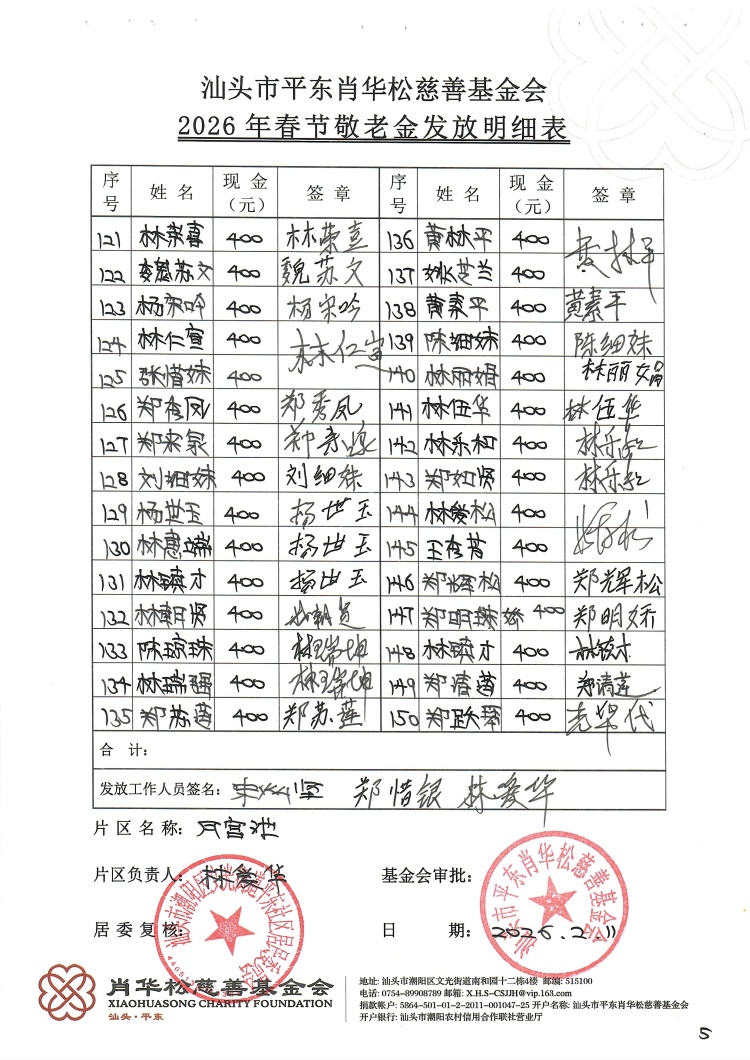 汕头市平东肖华松慈善基金会
2026年春节敬老金发放明细表
序号 姓名 现金（元） 签章 序号 姓名 现金（元） 签章
121 林荣喜 400 林荣喜 136 黄林平 400 黄林平
122 魏苏文 400 魏苏文 137 姚芝兰 400
123 杨宋吟 400 杨宋吟 138 黄素平 400 黄素平
124 林仁宣 400 林仁宣 139 陈细妹 400 陈细妹
125 张惜妹 400 140 林丽娟 400 林丽娟
126 郑秀凤 400 郑秀凤 141 林伍华 400 林伍华
127 郑 400 郑 142 林乐和 400 林乐
128 刘细妹 400 刘细妹 143 郑如贤 400 林乐
129 杨世玉 400 杨世玉 144 林爱松 400
130 林惠端 400 杨世玉 145 王 400
131 林镇才 400 杨世玉 146 郑辉松 400 郑辉松
132 林朝贤 400 林朝贤 147 郑明 娇 400 郑明娇
133 陈琼珠 400 林瑞坤 148 林镇才 400 林镇才
134 林瑞 400 林瑞坤 149 郑清莲 400 郑清莲
135 郑苏莲 400 郑苏莲 150 郑跃 400 华代
合计：
发放工作人员签名： 坚 郑惜银 林爱华
片区名称：月宫池
片区负责人：林爱华 基金会审批：
居委复核： 日期：2026.2.11
汕头市平东肖华松慈善基金会
肖华松慈善基金会
XIAOHUASONG CHARITY FOUNDATION
汕头·平东
地址: 汕头市潮阳区文光街道南和园十二栋4楼 邮编: 515100
电话: 0754-89908789 邮箱: X.H.S-CSJJH@vip.163.com
捐款帐户: 5864-501-01-2-2011-001047-25 开户名称: 汕头市平东肖华松慈善基金会
开户银行: 汕头市潮阳农村信用合作联社营业厅
5